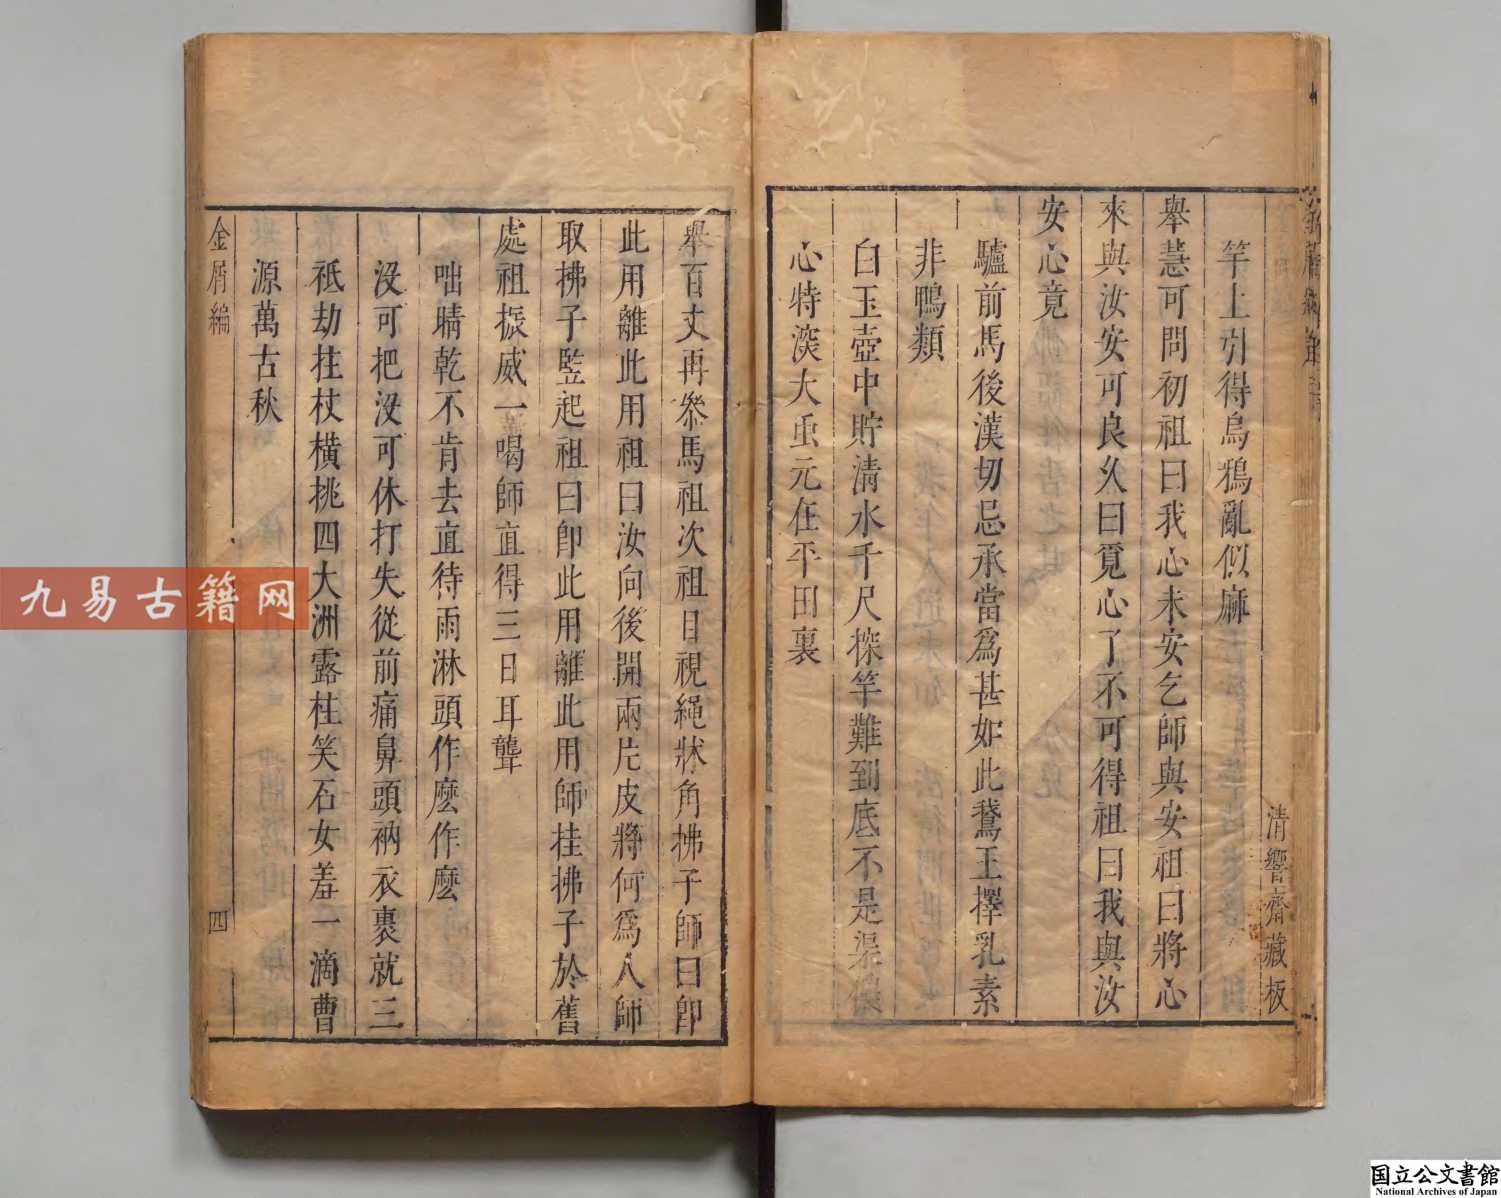 清響齋藏板
竿上引得烏鴉亂似麻
舉慧可問初祖曰我心未安乞師與安祖曰將心
來與汝安可良久曰覓心了不可得祖曰我與汝
安心竟
驢前馬後漢切忌承當爲甚如此鵞王擇乳素
非鴨類
白玉壺中貯清水千尺探竿難到底不是渠儂
心特深大虫元在平田裏
舉百丈再叅馬祖次祖目視繩牀角拂子師曰卽
此用離此用祖曰汝向後開兩片皮將何爲人師
取拂子監起祖曰卽此用離此用師挂拂子於舊
處祖振威一喝師直得三日耳聾
咄睛乾不肯去直待雨淋頭作麽作麽
沒可把沒可休打失從前痛鼻頭衲衣裹就三
祇劫拄杖橫挑四大洲露柱笑石女羞一滴曹
源萬古秋
金屑編
四
九易古籍网
国立公文書館
National Archives of Japan